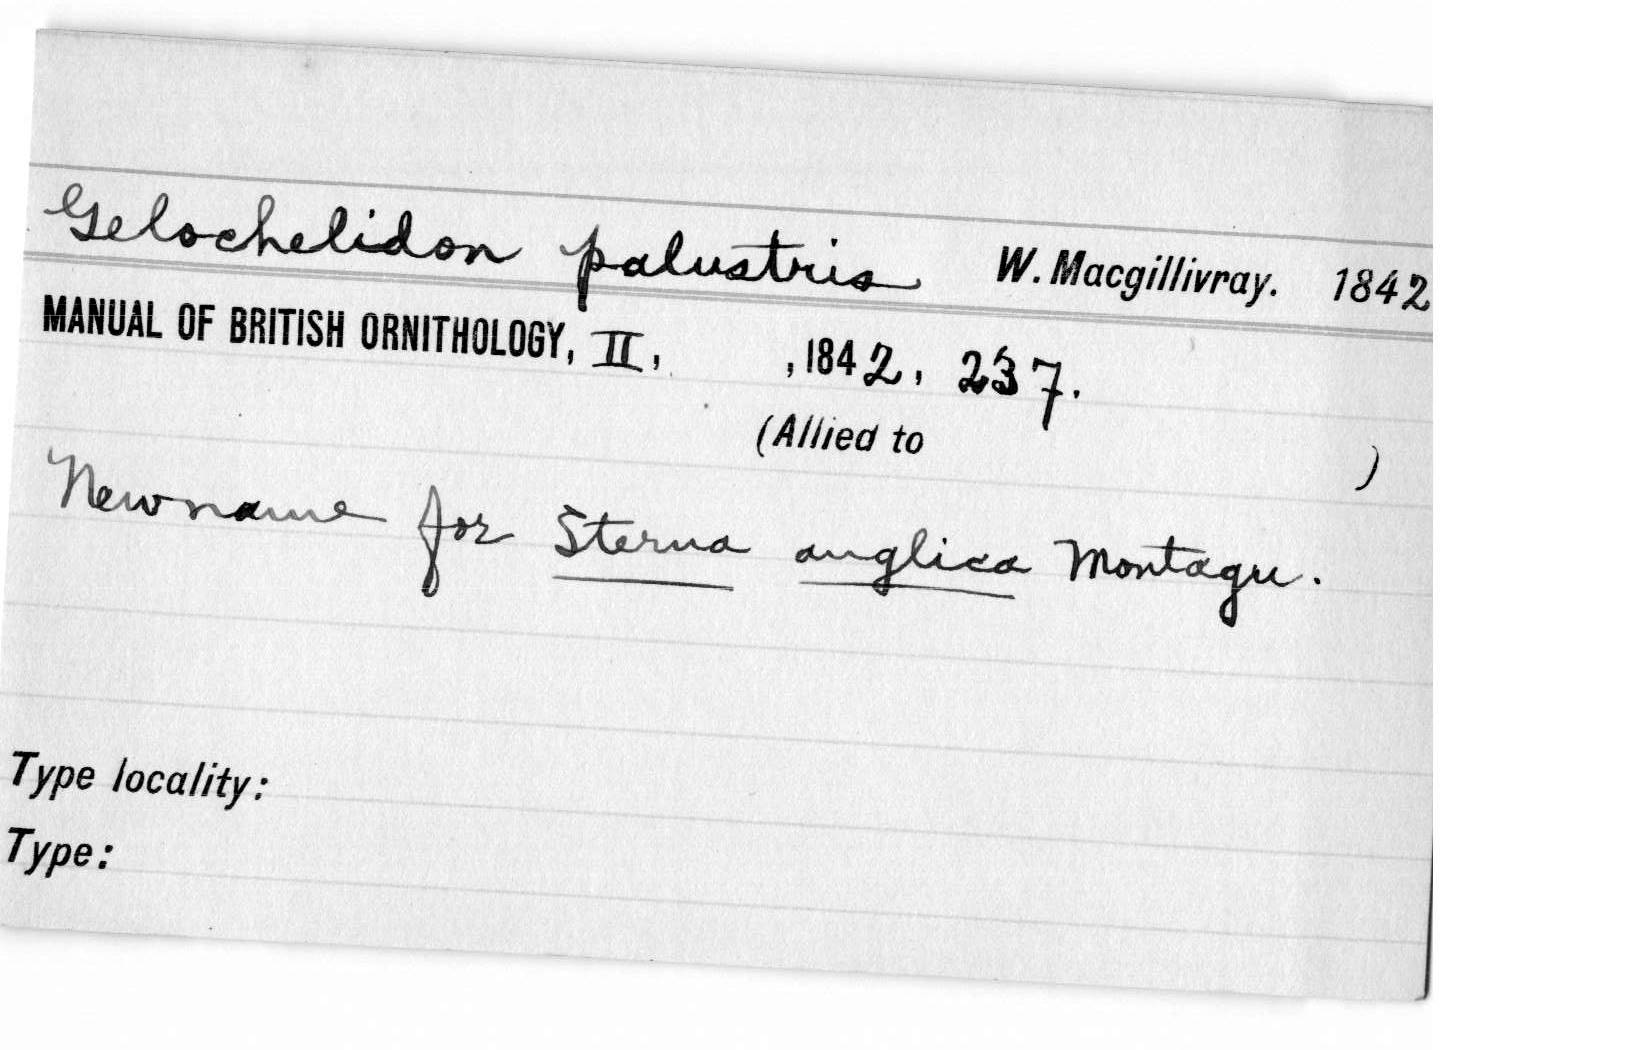 Gelochelidon palustris W. Macgillivray. 1842
MANUAL OF BRITISH ORNITHOLOGY, II, , 1842, 237.
(Allied to )
New name for Sterna anglica Montagu.
Type locality:
Type: